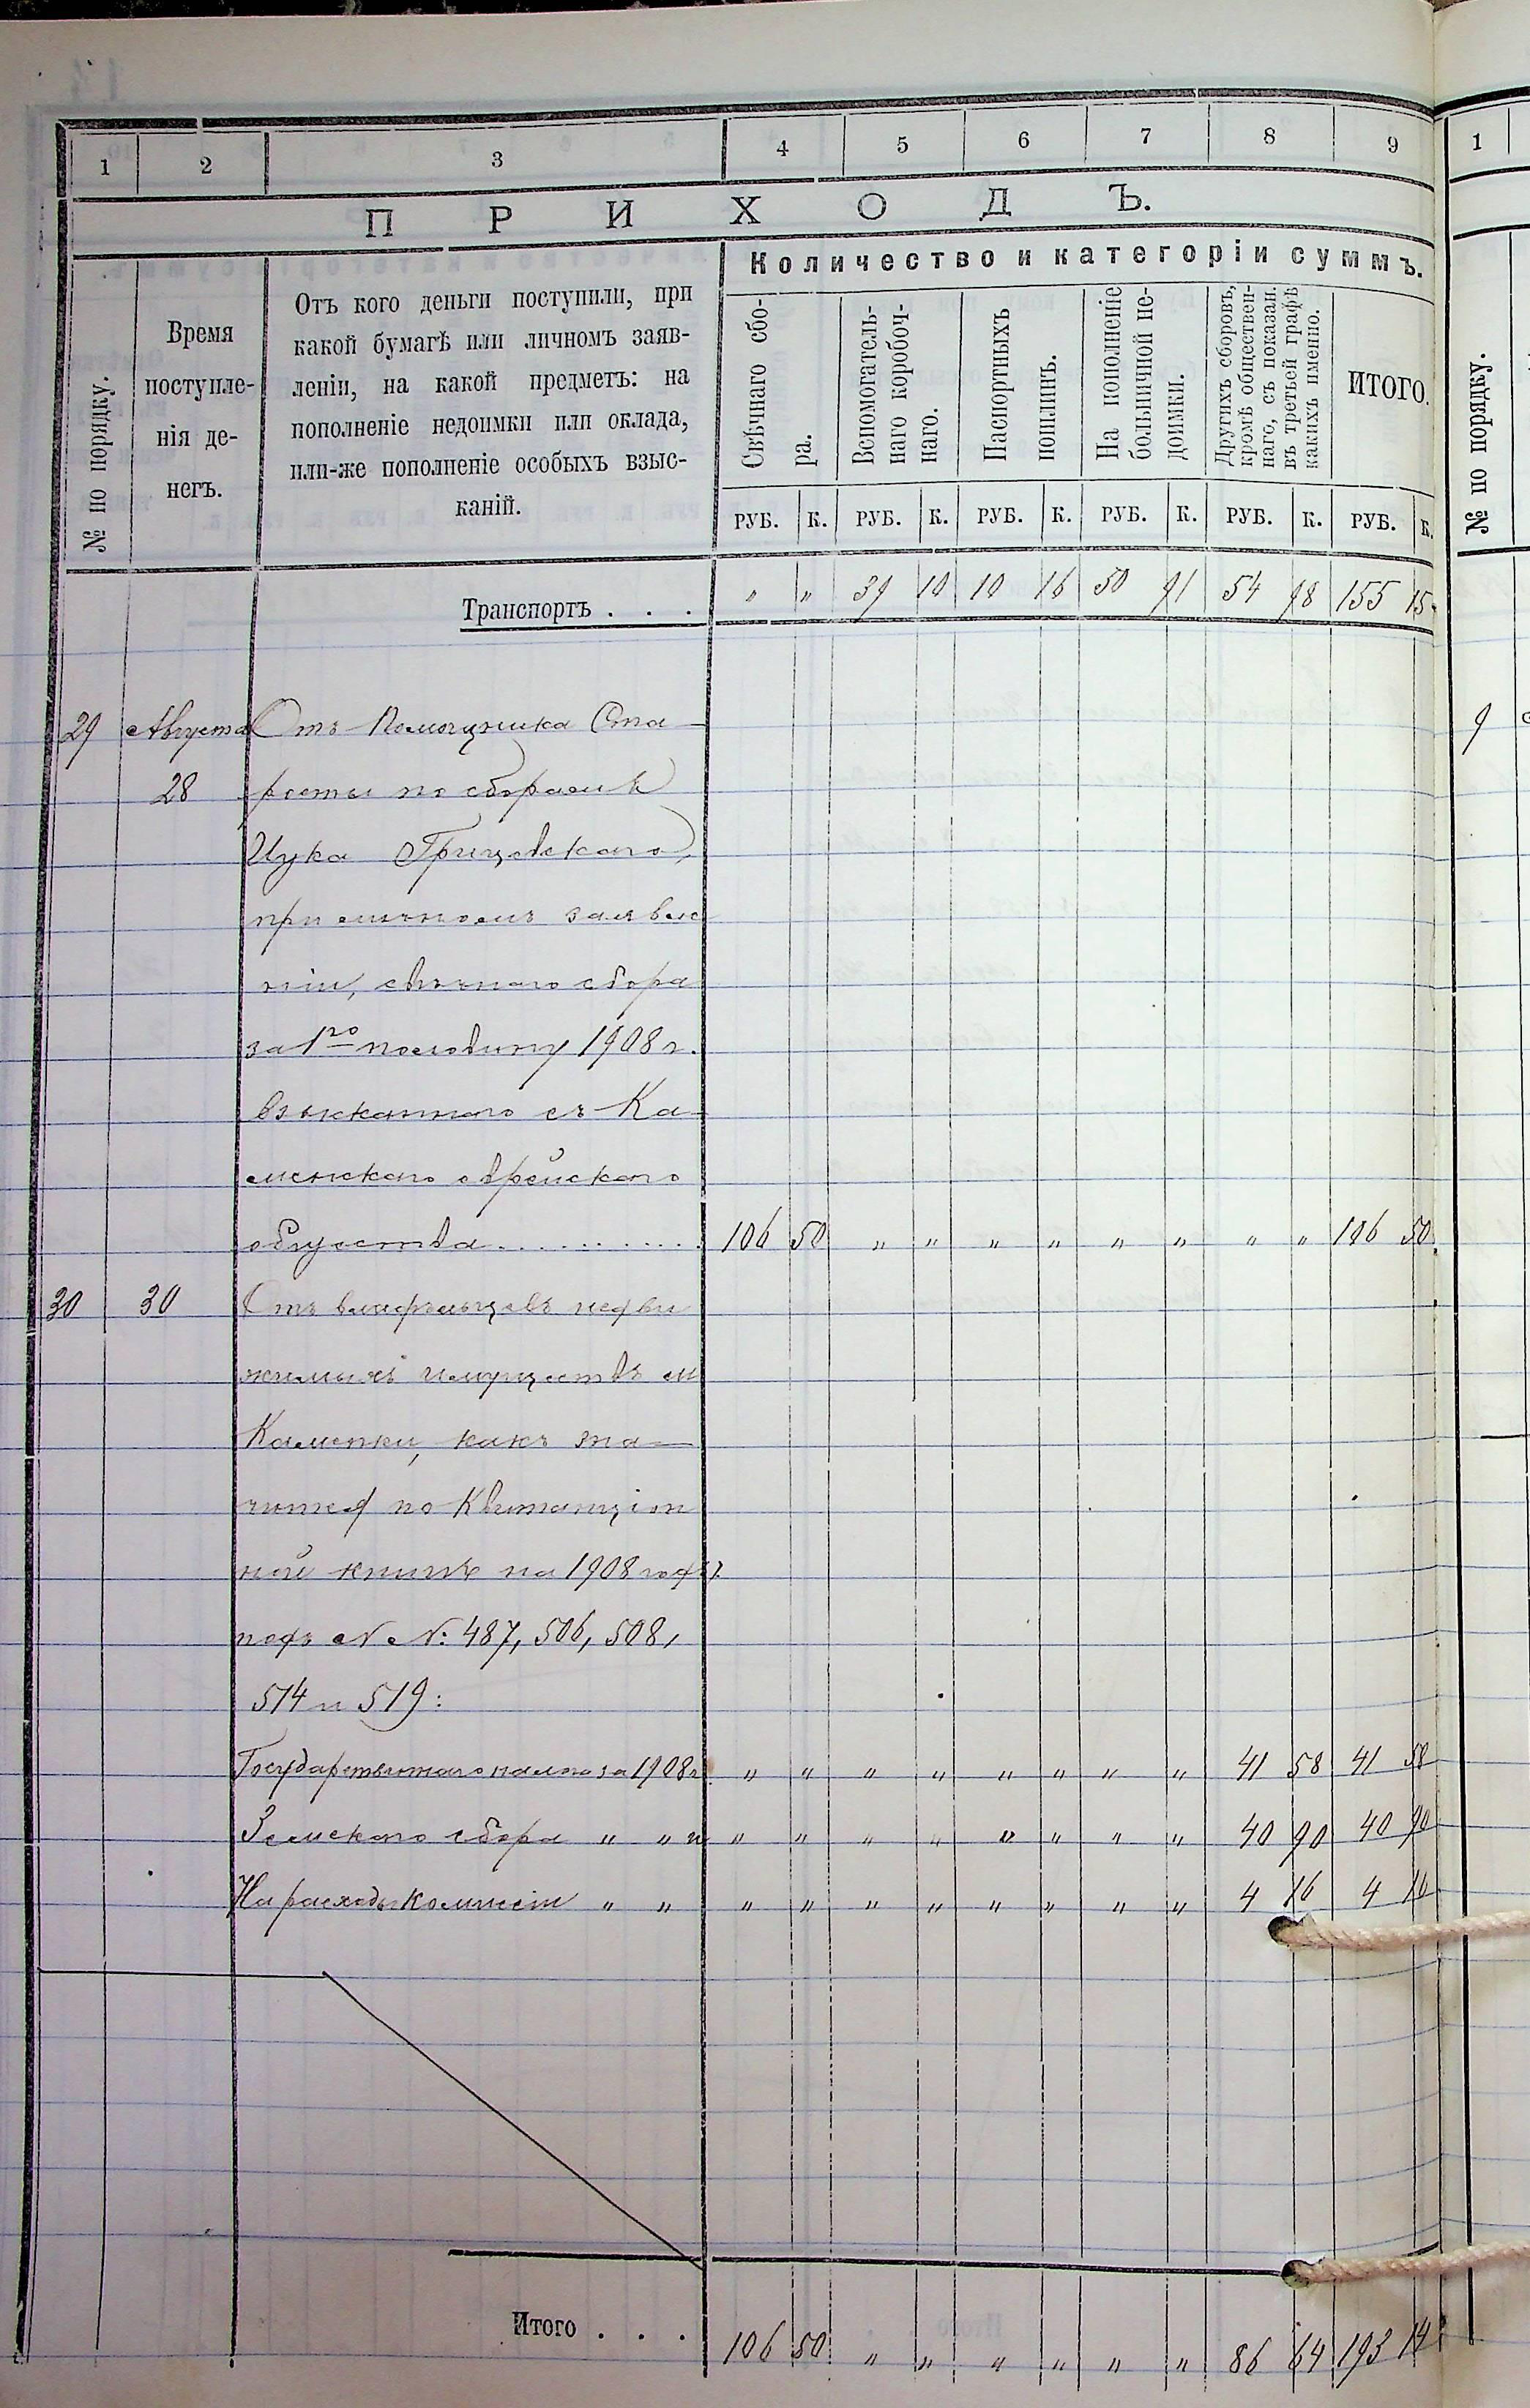 1 2 3 4 5 6 7 8 9
ПРИХОДЪ.
Количество и категоріи суммъ.
№ по порядку.
Время
поступле-
нія де-
негъ.
Отъ кого деньги поступили, при
какой бумагѣ или личномъ заяв-
леніи, на какой предметъ: на
пополненіе недоимки или оклада,
или-же пополненіе особыхъ взыс-
каній.
Свѣчнаго сбо-
ра.
Вспомогатель-
наго коробоч-
наго.
Паспортныхъ
пошлинъ.
На пополненіе
больничной не-
доимки.
Другихъ сборовъ,
кромѣ обществен-
наго, съ показан.
въ третьей графѣ
какихъ именно.
ИТОГО.
РУБ. К. РУБ. К. РУБ. К. РУБ. К. РУБ. К. РУБ. К.
Транспортъ . . . " " 39 10 10 16 50 91 54 98 155 15
29 Августа Отъ Помощника Ста-
28 росты по сборамъ
Ицка Грицевскаго,
при личномъ заявле
ніи, свѣчнаго сбора
за 1ю половину 1908 г.
взысканнаго съ Ка-
менскаго еврейскаго
общества . . . . . . . . . . 106 50 " " " " " " " " 106 50
30 30 Отъ владѣльцевъ недви
жимыхъ имуществъ м
Каменки, какъ зна-
чится по Квитанціон
ной книгѣ на 1908 годъ
подъ №№: 487, 506, 508,
514 и 519:
Государственнаго налога за 1908 г. " " " " " " " " 41 58 41 58
Земскаго сбора " " " " " " " " " " " 40 90 40 90
На расходы Комисіи " " " " " " " " " " 4 16 4 16
Итого . . . 106 50 " " " " " " 86 64 193 14
1
№ по порядку.
9